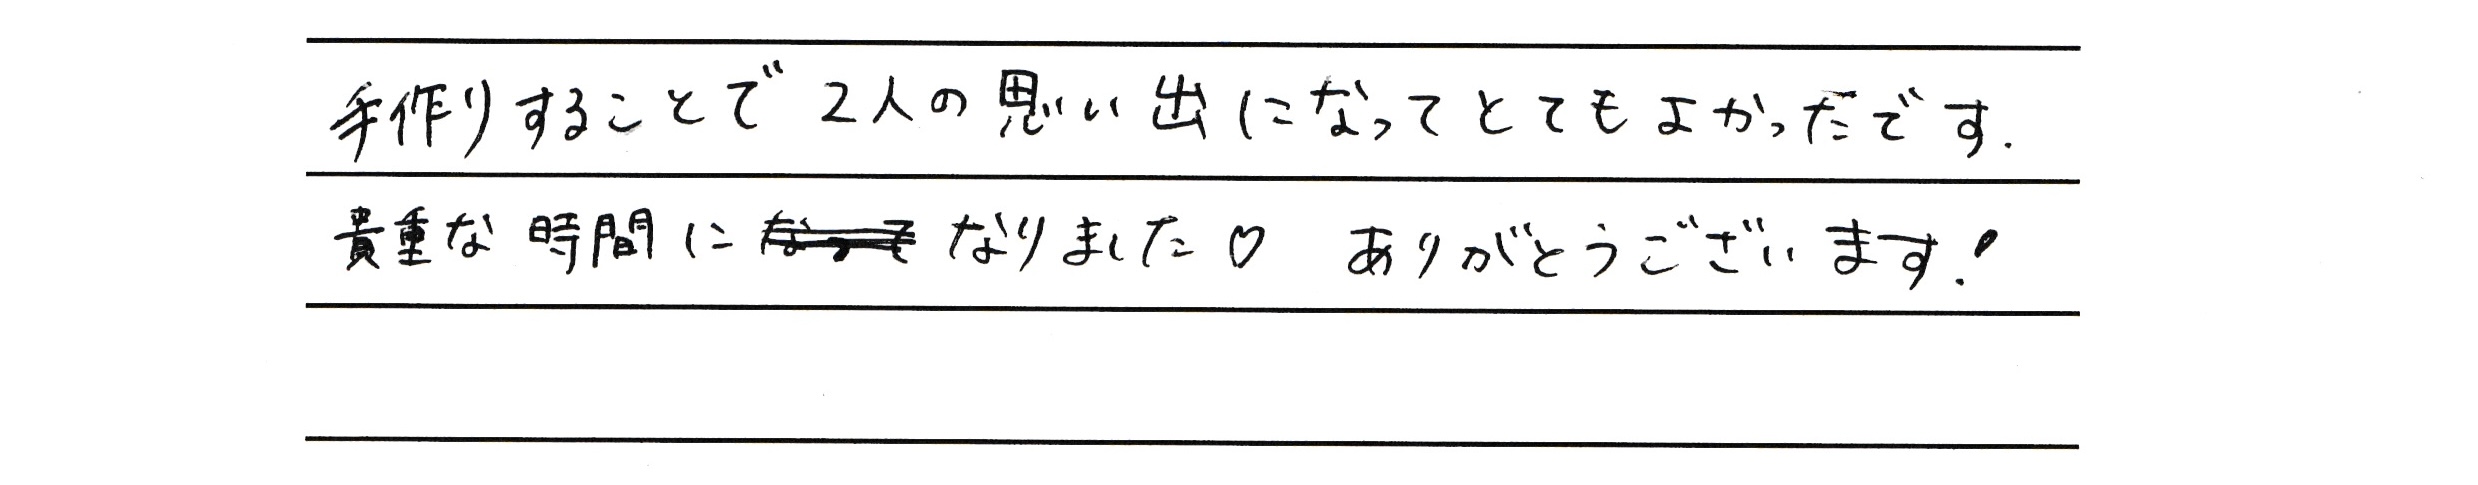 手作りすることで 2人の思い出になってとてもよかったです.
貴重な時間に なって なりました♡ ありがとうございます!